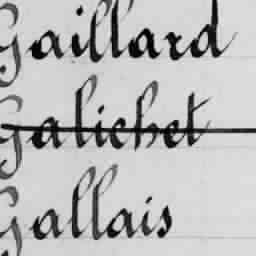 Gaillard
Galichet
Gallais